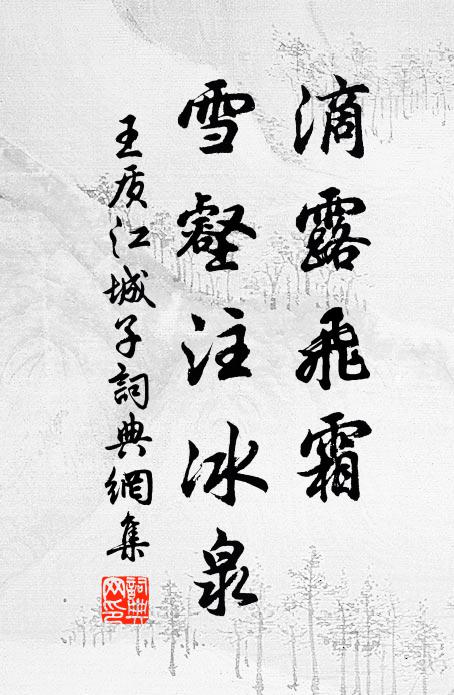 滴露飛霜
雪壑注冰泉
王质江城子詞典網集
詞典網印